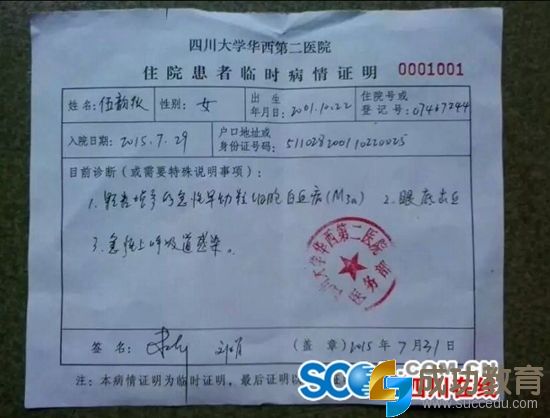 四川大学华西第二医院
住院患者临时病情证明 0001001
姓名: 性别: 女 出生年月日: 2001.10.22 住院号或登记号: 07467244
入院日期: 2015.7.29 户口地址或身份证号码: 511028200110220025
目前诊断(或需要特殊说明事项):
1. 颗粒增多的急性早幼粒细胞白血病(M3a) 2. 眼底出血
3. 急性上呼吸道感染。
四川大学华西第二医院
医务部
签名: (盖章) 2015年7月31日
注:本病情证明为临时证明,最后证明以
SC COM.CN
四川在线
成功教育
www.succedu.com